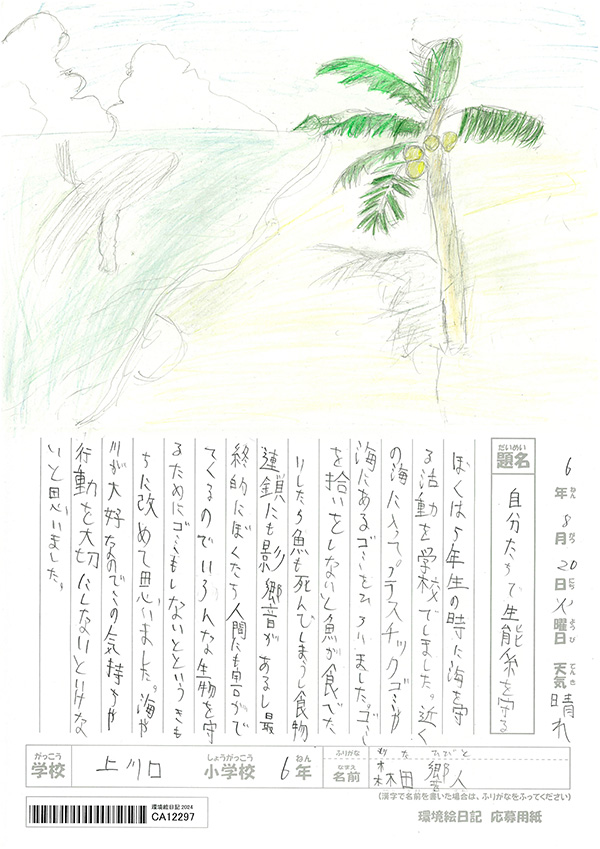 6年8月20日火曜日 天気晴れ
ねん がつ にち ようび てんき
だいめい
題名
自分たちで生能系を守る
ぼくは5年生の時に海を守
る活動を学校でしました。近く
の海に入って。プラスチックゴミや
海にあるゴミをひろいました。ゴミ
を拾いをしないと魚が食べた
りしたら魚も死んでしまうし食物
連鎖にも影響があるし最
終的にぼくたち人間にも害がで
てくるのでいろんな生物を守
るためにゴミもしないとというきも
ちに改めて思いました。海や
川が大好なのでこの気持ちや
行動を大切にしないといけな
いと思いました。
がっこう
学校
上川口
しょうがっこう
小学校
6年
ねん
ふりがな
なまえ
名前
田響人
(漢字で名前を書いた場合は、ふりがなをふってください)
環境絵日記 2024
CA12297
環境絵日記 応募用紙